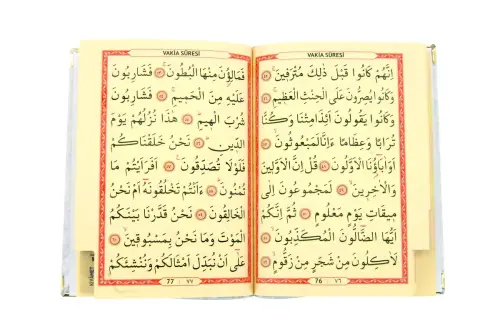 VAKİA SÛRESİ
اِنَّهُمْ كَانُوا قَبْلَ ذٰلِكَ مُتْرَفٖينَۚ ﴿٤٥﴾
وَكَانُوا يُصِرُّونَ عَلَى الْحِنْثِ الْعَظٖيمِۚ ﴿٤٦﴾
وَكَانُوا يَقُولُونَ اَئِذَا مِتْنَا وَكُنَّا
تُرَابًا وَعِظَامًا ءَاِنَّا لَمَبْعُوثُونَۙ ﴿٤٧﴾
اَوَاٰبَٓاؤُنَا الْاَوَّلُونَ ﴿٤٨﴾ قُلْ اِنَّ الْاَوَّلٖينَ
وَالْاٰخِرٖينَۙ ﴿٤٩﴾ لَمَجْمُوعُونَ اِلٰى
مٖيقَاتِ يَوْمٍ مَعْلُومٍ ﴿٥٠﴾ ثُمَّ اِنَّكُمْ
اَيُّهَا الضَّٓالُّونَ الْمُكَذِّبُونَۙ ﴿٥١﴾
لَاٰكِلُونَ مِنْ شَجَرٍ مِنْ زَقُّومٍۙ ﴿٥٢﴾
76 ٧٦
VAKİA SÛRESİ
فَمَالِؤُ۫نَ مِنْهَا الْبُطُونَۚ ﴿٥٣﴾ فَشَارِبُونَ
عَلَيْهِ مِنَ الْحَمٖيمِۚ ﴿٥٤﴾ فَشَارِبُونَ
شُرْبَ الْهٖيمِۜ ﴿٥٥﴾ هٰذَا نُزُلُهُمْ يَوْمَ
الدّٖينِۜ ﴿٥٦﴾ نَحْنُ خَلَقْنَاكُمْ
فَلَوْلَا تُصَدِّقُونَ ﴿٥٧﴾ اَفَرَاَيْتُمْ مَا
تُمْنُونَۜ ﴿٥٨﴾ ءَاَنْتُمْ تَخْلُقُونَهُٓ اَمْ نَحْنُ
الْخَالِقُونَ ﴿٥٩﴾ نَحْنُ قَدَّرْنَا بَيْنَكُمُ
الْمَوْتَ وَمَا نَحْنُ بِمَسْبُوقٖينَۙ ﴿٦٠﴾
عَلٰٓى اَنْ نُبَدِّلَ اَمْثَالَكُمْ وَنُنْشِئَكُمْ
77 ٧٧